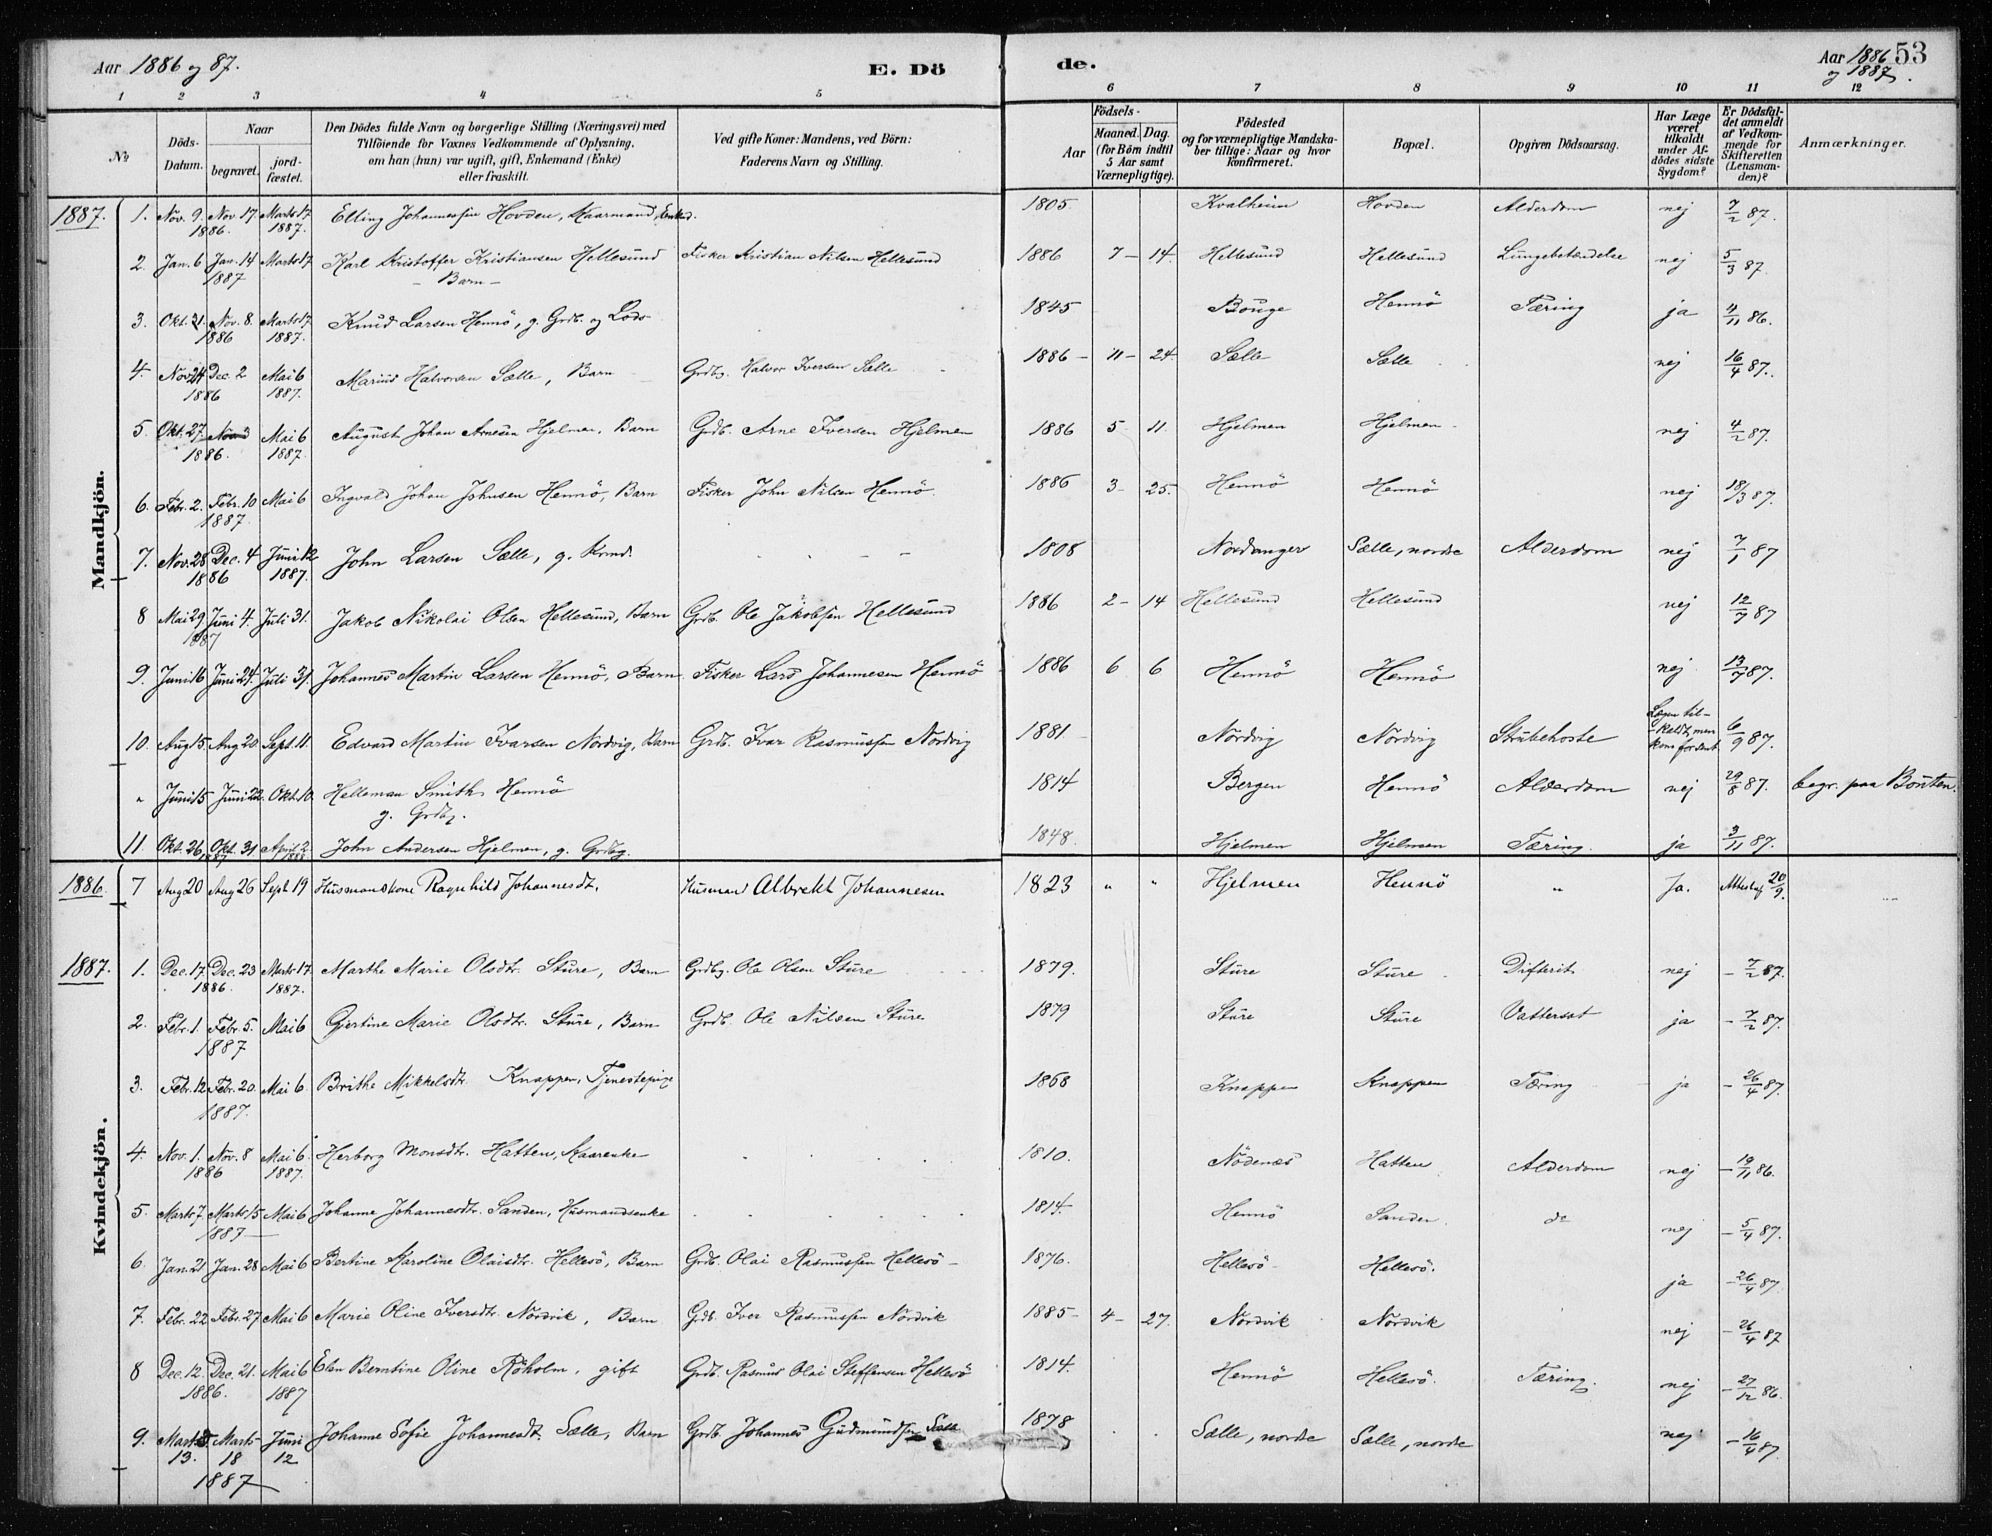 Aar 1886 og 87.
E. Dö
de.
Aar 1886 og 1887. 53
1 2 3 4 5 6 7 8 9 10 11 12
No
Döds-Datum.
Naar
begravet.
jord-fæstet.
Den Dödes fulde Navn og borgerlige Stilling (Næringsvei) med
Tilföiende for Voxnes Vedkommende af Oplysning,
om han (hun) var ugift, gift, Enkemand (Enke)
eller fraskilt.
Ved gifte Koner: Mandens, ved Börn:
Faderens Navn og Stilling.
Födsels-
Aar
Maaned. Dag.
(for Börn indtil
5 Aar samt
Værnepligtige).
Födested
og for værnepligtige Mandska-
ber tillige: Naar og hvor
konfirmeret.
Bopæl.
Opgiven Dödsaarsag.
Har Læge
været
tilkaldt
under Af-
dödes sidste
Sygdom?
Er Dödsfal-
det anmeldt
af Vedkom-
mende for
Skifteretten
(Lensman-
den)?
Anmærkninger.
Mandkjön.
1887. 1. Nov. 9. Nov. 17 Marts 17 Elling Johannessen Hovden, Kaarmand, Enkem. 1805. Kvalheim Hovden Alderdom nej 7/2 87.
1886. 1887.
2. Jan. 6 Jan. 14 Marts 17 Karl Kristoffer Kristiansen Hellesund Fisker Kristian Nilsen Hellesund 1886 7 - 14. Hellesund Hellesund Lungebetændelse nej 5/3 87.
1887 - Barn -
3. Okt. 31. Nov. 8. Marts 17 Knud Larsen Hennö, g. Grdb. og Lods 1845 Bouge Hennö Tæring ja 4/11 86.
1886 1887.
4. Nov. 24 Dec. 2 Mai 6 Marius Halvorsen Sælle, Barn Grdbg. Halvor Iversen Sælle 1886 - 11 - 24. Sælle Sælle nej 16/4 87.
1886 1887.
5. Okt. 27 Mai 6 August Johan Arnesen Hjelmen, Barn Grdb. Arne Iversen Hjelmen 1886 5 - 11. Hjelmen Hjelmen nej 4/2 87.
1886. 1887.
6. Febr. 2. Febr. 10 Mai 6 Ingvald Johan Johnsen Hennö, Barn Fisker John Nilsen Hennö. 1886 3 - 25. Hennö Hennö nej 18/3 87.
1887.
7. Nov. 28 Dec. 4 Juni 12 John Larsen Sælle, g. Krmd. 1808 Nordanger Sælle, nordre Alderdom nej 7/1 87
1886 1887.
8 Mai 29 Juni 4. Juli 31. Jakob Nikolai Olsen Hellesund, Barn Grdb. Ole Jakobsen Hellesund 1886 2 - 14 Hellesund Hellesund nej 12/7 87
1887
9. Juni 16 Juni 24 Juli 31. Johannes Martin Larsen Hennö, Barn Fisker Lars Johannesen Hennö 1886 6 6 Hennö Hennö nej 13/7 87.
10. Aug 15. Aug 20. Sept. 11. Edvard Martin Ivarsen Nordvig, Barn Grdb. Ivar Rasmussen Nordvig 1881 Nordvig Nordvig Strubehoste Lægen til-kaldt, men kom for sent 6/9 87.
" Juni 15 Juni 22. Okt. 10. Helleman Smith Hennö 1814 Bergen Hennö Alderdom nej 29/8 87. begr. paa Bouten.
g. Grdbg.
11. Okt. 26 Okt. 31. April 2 John Andersen Hjelmen, g. Grdbg. 1848. Hjelmen Hjelmen Tæring ja 3/11 87.
1887 1888
Kvindekjön.
1886. 7 Aug 20 Aug 26 Sept 19 Husmandskone Ragnhild Johannesdt. Husmand Albrekt Johannesen 1823 " " Hjelmen Hennö " Ja. 20/9.
1887. 1. Dec. 17. Dec. 23 Marts 17. Marthe Marie Olsdtr. Sture, Barn Grdbg. Ole Olsen Sture 1879. Sture Sture Difterit nej - 7/2 87.
1886. 1887.
2. Febr. 1. Febr. 5. Mai 6 Gjertine Marie Olsdtr. Sture, Barn Grdb. Ole Nilsen Sture 1879 Sture Sture Vattersot ja - 7/2 87.
1887
3. Febr. 12 Febr. 20. Mai 6 Brithe Mikkelsdtr. Knappen, Tjenestepige 1868 Knappen Knappen Tæring ja - 26/4 87.
1887.
4. Nov. 1. Nov. 8 Mai 6. Herborg Monsdtr. Hatten, Kaarenke 1810. Nödenæs Hatten Alderdom nej - 19/11 86.
1886 1887.
5. Marts 7. Marts 15 Mai 6 Johanne Johannesdtr. Sanden, Husmandsenke 1814. Hennö Sanden. do nej - 5/4 87.
1887 -
6. Jan. 21 Jan. 28 Mai 6 Bertine Karoline Olaisdtr. Hellesö, Barn Grdb. Olai Rasmussen Hellesö - 1876. Hellesö Hellesö. ja - 26/4 87.
7. Febr. 22 Febr. 27 Mai 6 Marie Oline Iversdtr. Nordvik, Barn Grdb. Iver Rasmussen Nordvik 1885 - 4 - 27. Nordvik Nordvik nej - 26/4 87
8 Dec. 12. Dec. 21. Mai 6 Elen Berntine Oline Röholm, gift Grdb. Rasmus Olai Steffensen Hellesö 1814. Hennö Hellesö. Tæring. nej - 27/12 86.
1886. 1887
9. Marts Marts Juni Johanne Sofie Johannesdt. Sælle, Barn Grdb. Johannes Gudmundsen Sælle 1878 Sælle, nordre Sælle, nordre nej - 16/4 87.
13. 18 12
1887